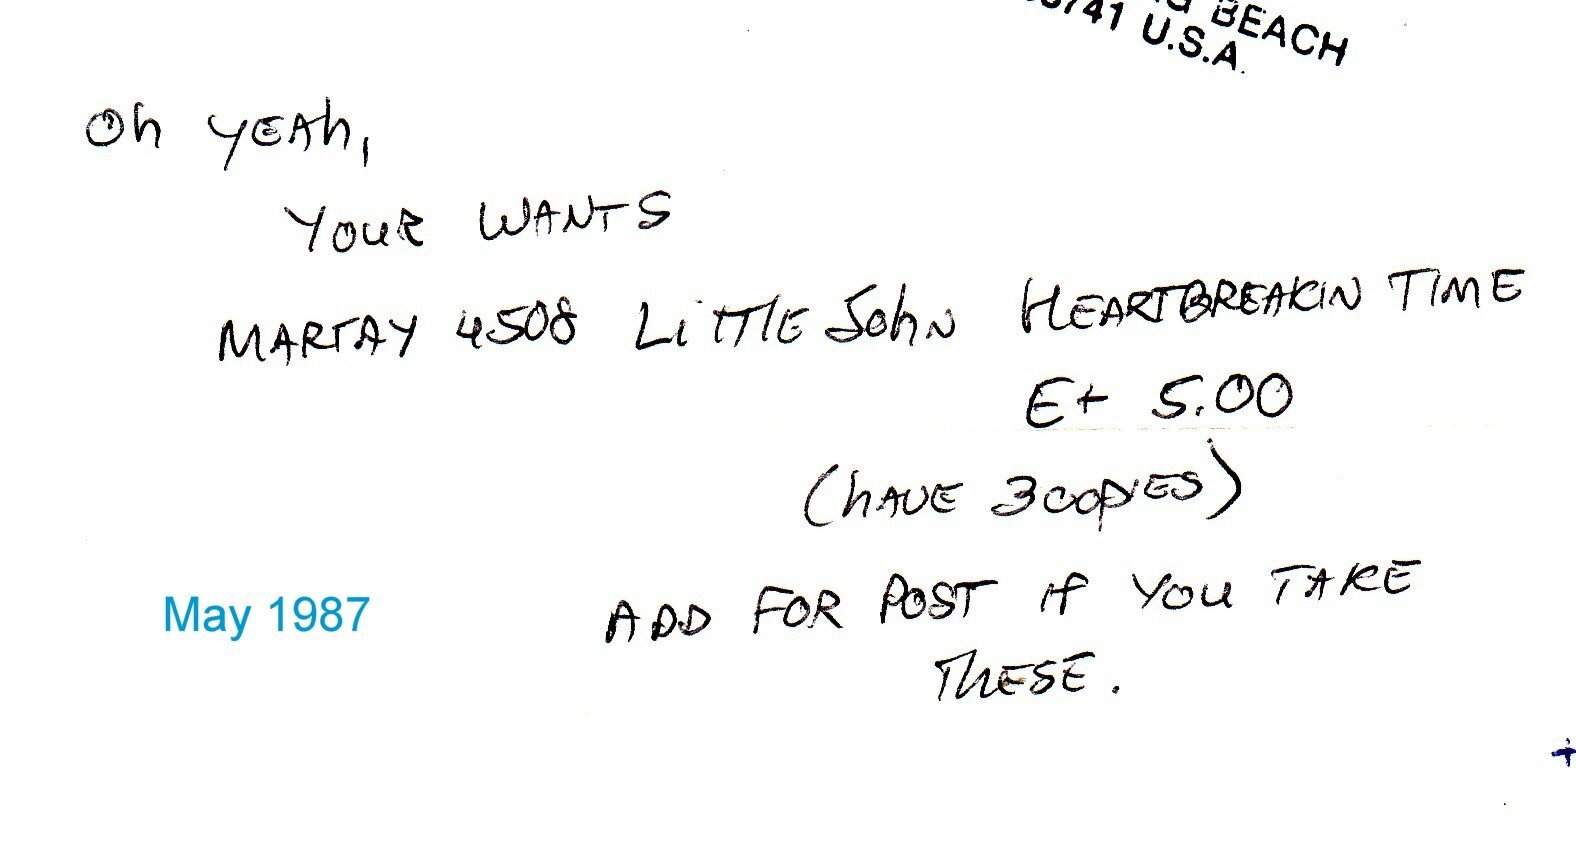 BEACH
741 U.S.A.
Oh YEAh,
YOUR WANTS
MARTAY 4508 LiTTLE John HEARTBREAKIN TIME
E+ 5.00
(hAVE 3 COPIES)
ADD FOR POST if YOU TAKE
May 1987
ThESE.
+